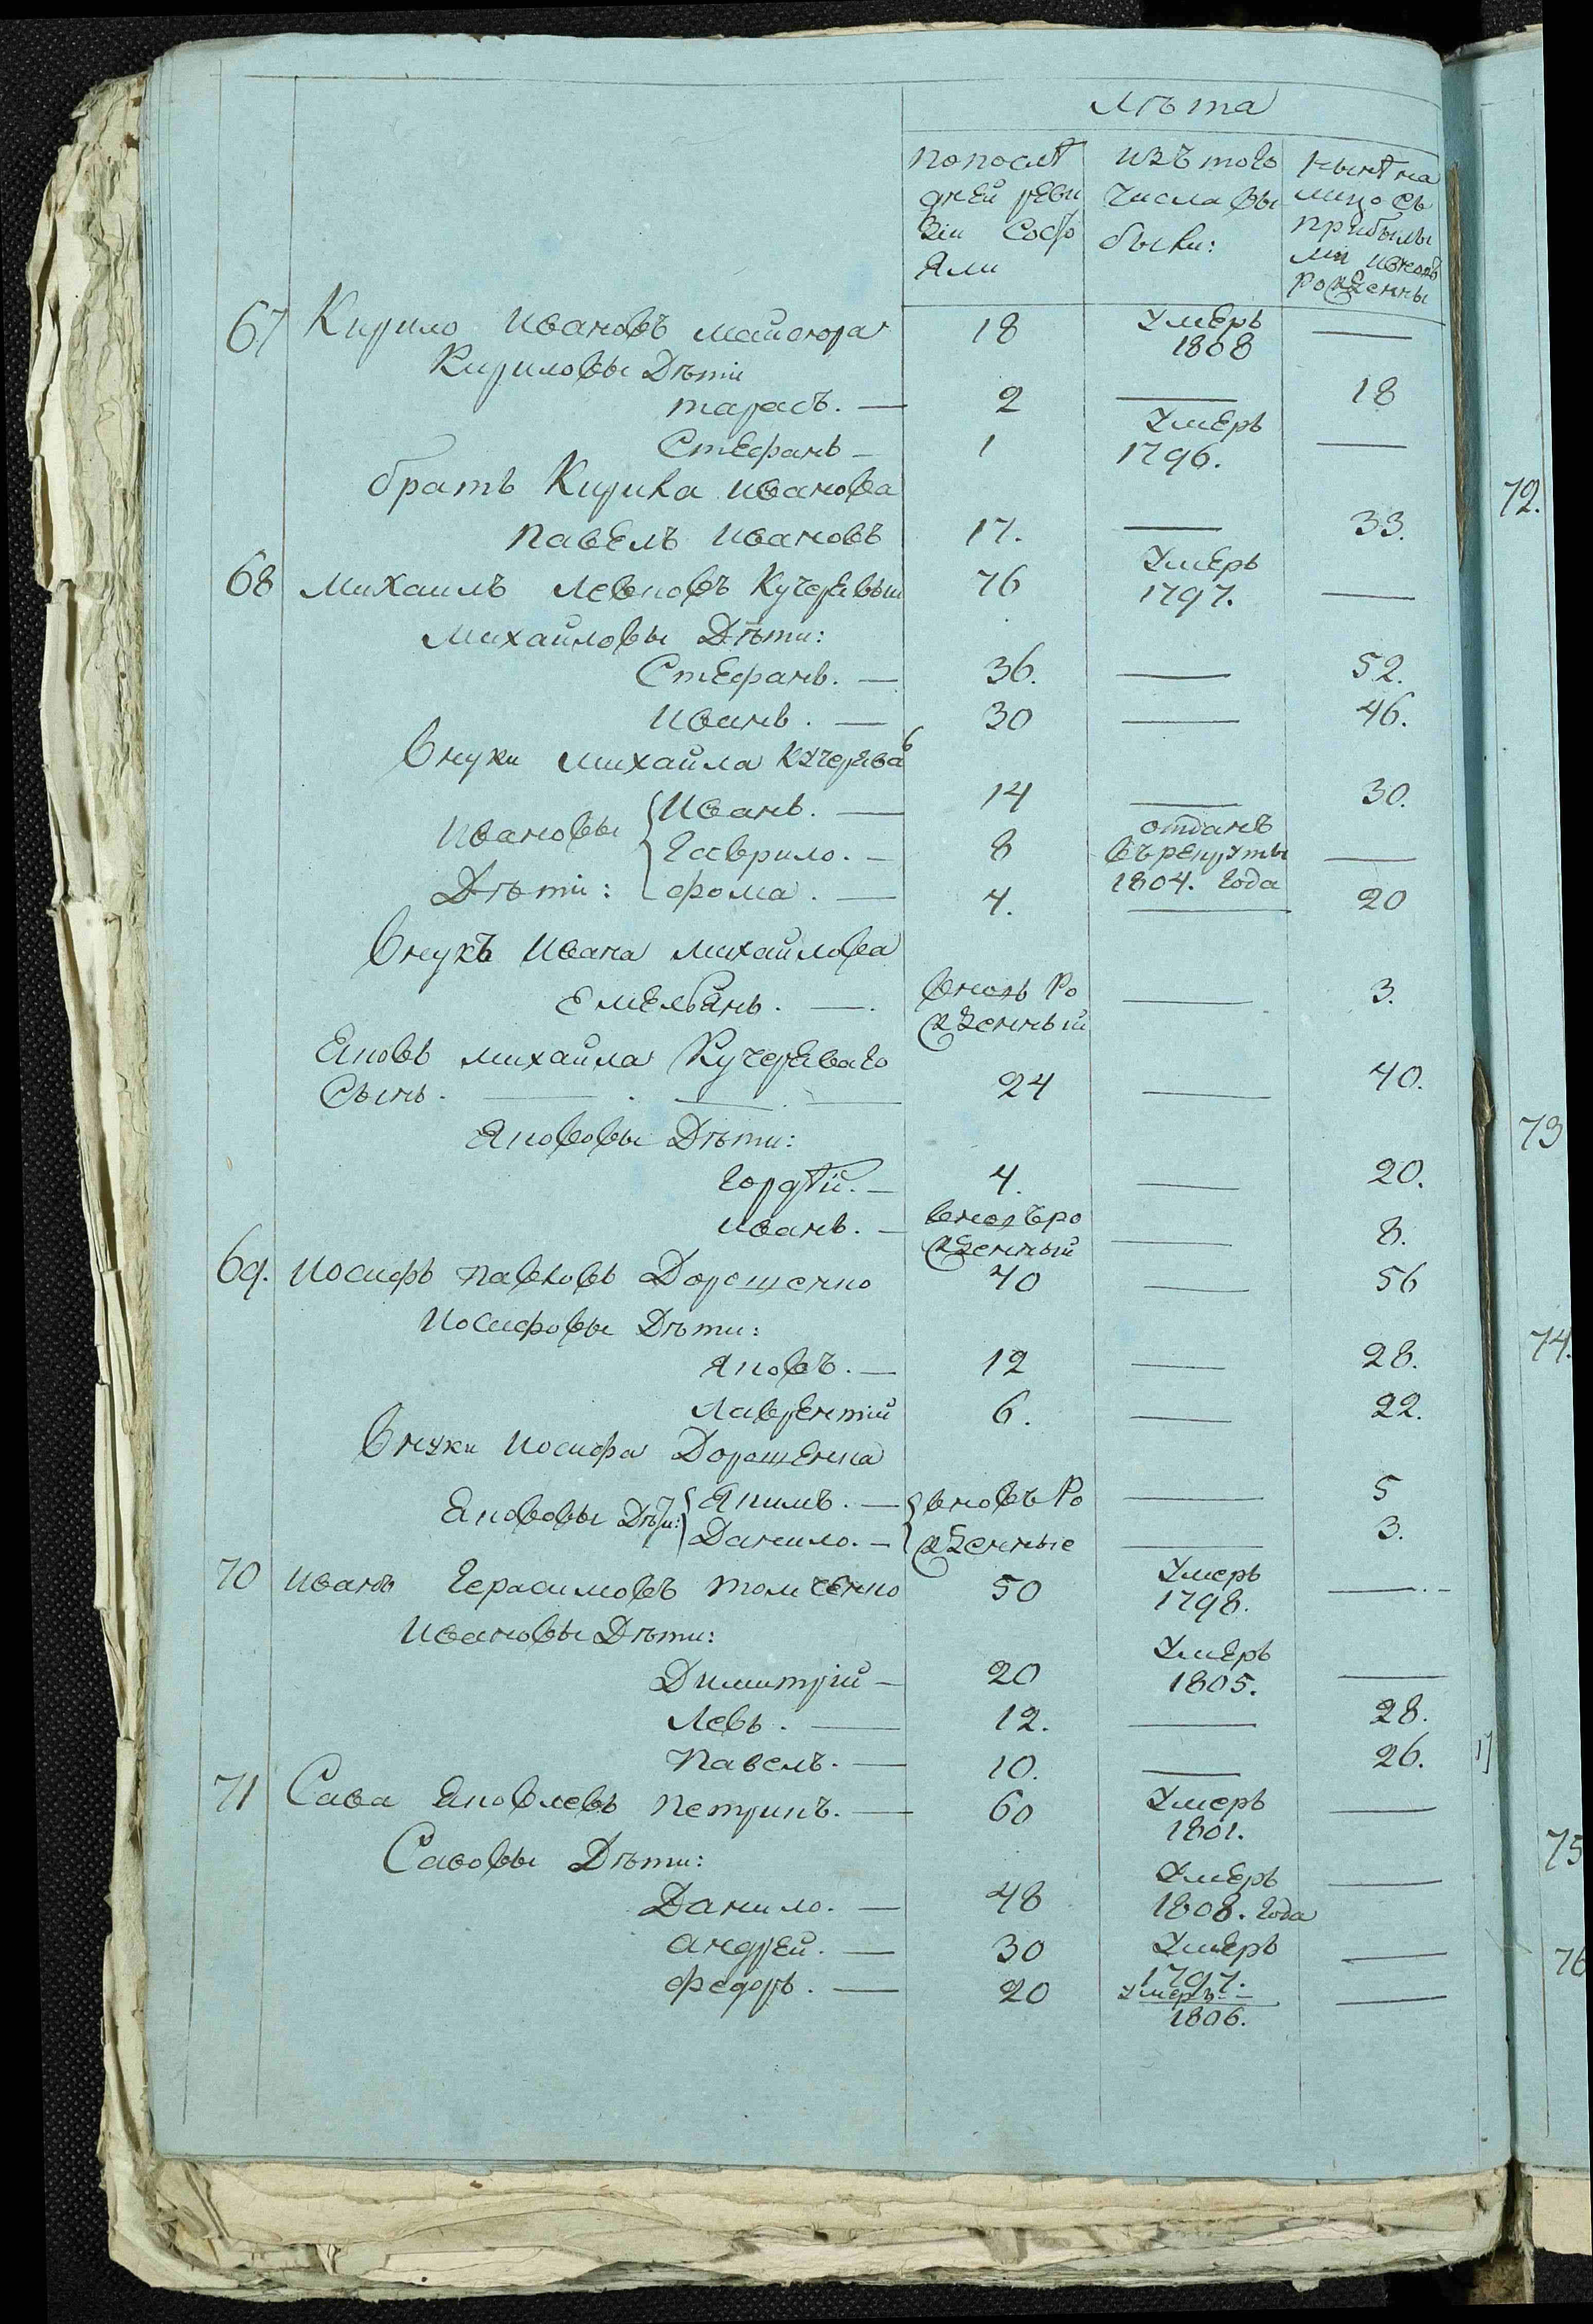 Лѣта
по послѣ
дней реви
зіи Состо
яли
изъ того
числа вы
были:
нынѣ на
лицо съ
прибылы
ми и вновь
рожденны
67 Кирило Ивановъ 18 Умеръ 1808 —
Кириловы Дѣти
тарасъ. — 2 — 18
Стефанъ — 1 Умеръ 1796. —
братъ Кирила иванова
павелъ ивановъ 17. — 33.
68 михаилъ Кучерявый 76 Умеръ 1797. —
михайловы Дѣти:
Стефанъ. — 36. — 52.
иванъ. — 30 — 46.
внуки михайла Кучеряваго
ивановы Дѣти:
Иванъ. — 14 — 30.
Гаврило. — 8 отданъ въ рекруты 1804. года —
фома. — 4. — 20
внукъ ивана михайлова
емельянъ. — вновь Рожденный — 3.
Яковъ михайла Кучеряваго
Сынъ. — 24 — 40.
Якововы Дѣти:
Гордѣй. — 4. — 20.
иванъ. — вновь рожденный — 8.
69. иосифъ павловъ Дорошенко 40 — 56
иосифовы Дѣти:
Яковъ. — 12 — 28.
Лаврентій 6. — 22.
внуки иосифа Дорошенка
Якововы Дѣти:
Якимъ. — вновь Рожденные — 5
Данило. — — 3.
70 иванъ Герасимовъ 50 Умеръ 1798. —
ивановы Дѣти:
Димитрій — 20 Умеръ 1805. —
Левъ. — 12. — 28.
павелъ. — 10. — 26.
71 Сава Яковлевъ 60 Умеръ 1801. —
Савовы Дѣти:
Данило. — 48 Умеръ 1808. года —
андрей. — 30 Умеръ 1797. —
федоръ. — 20 Умеръ 1806. —
72.
73
74.
75
76